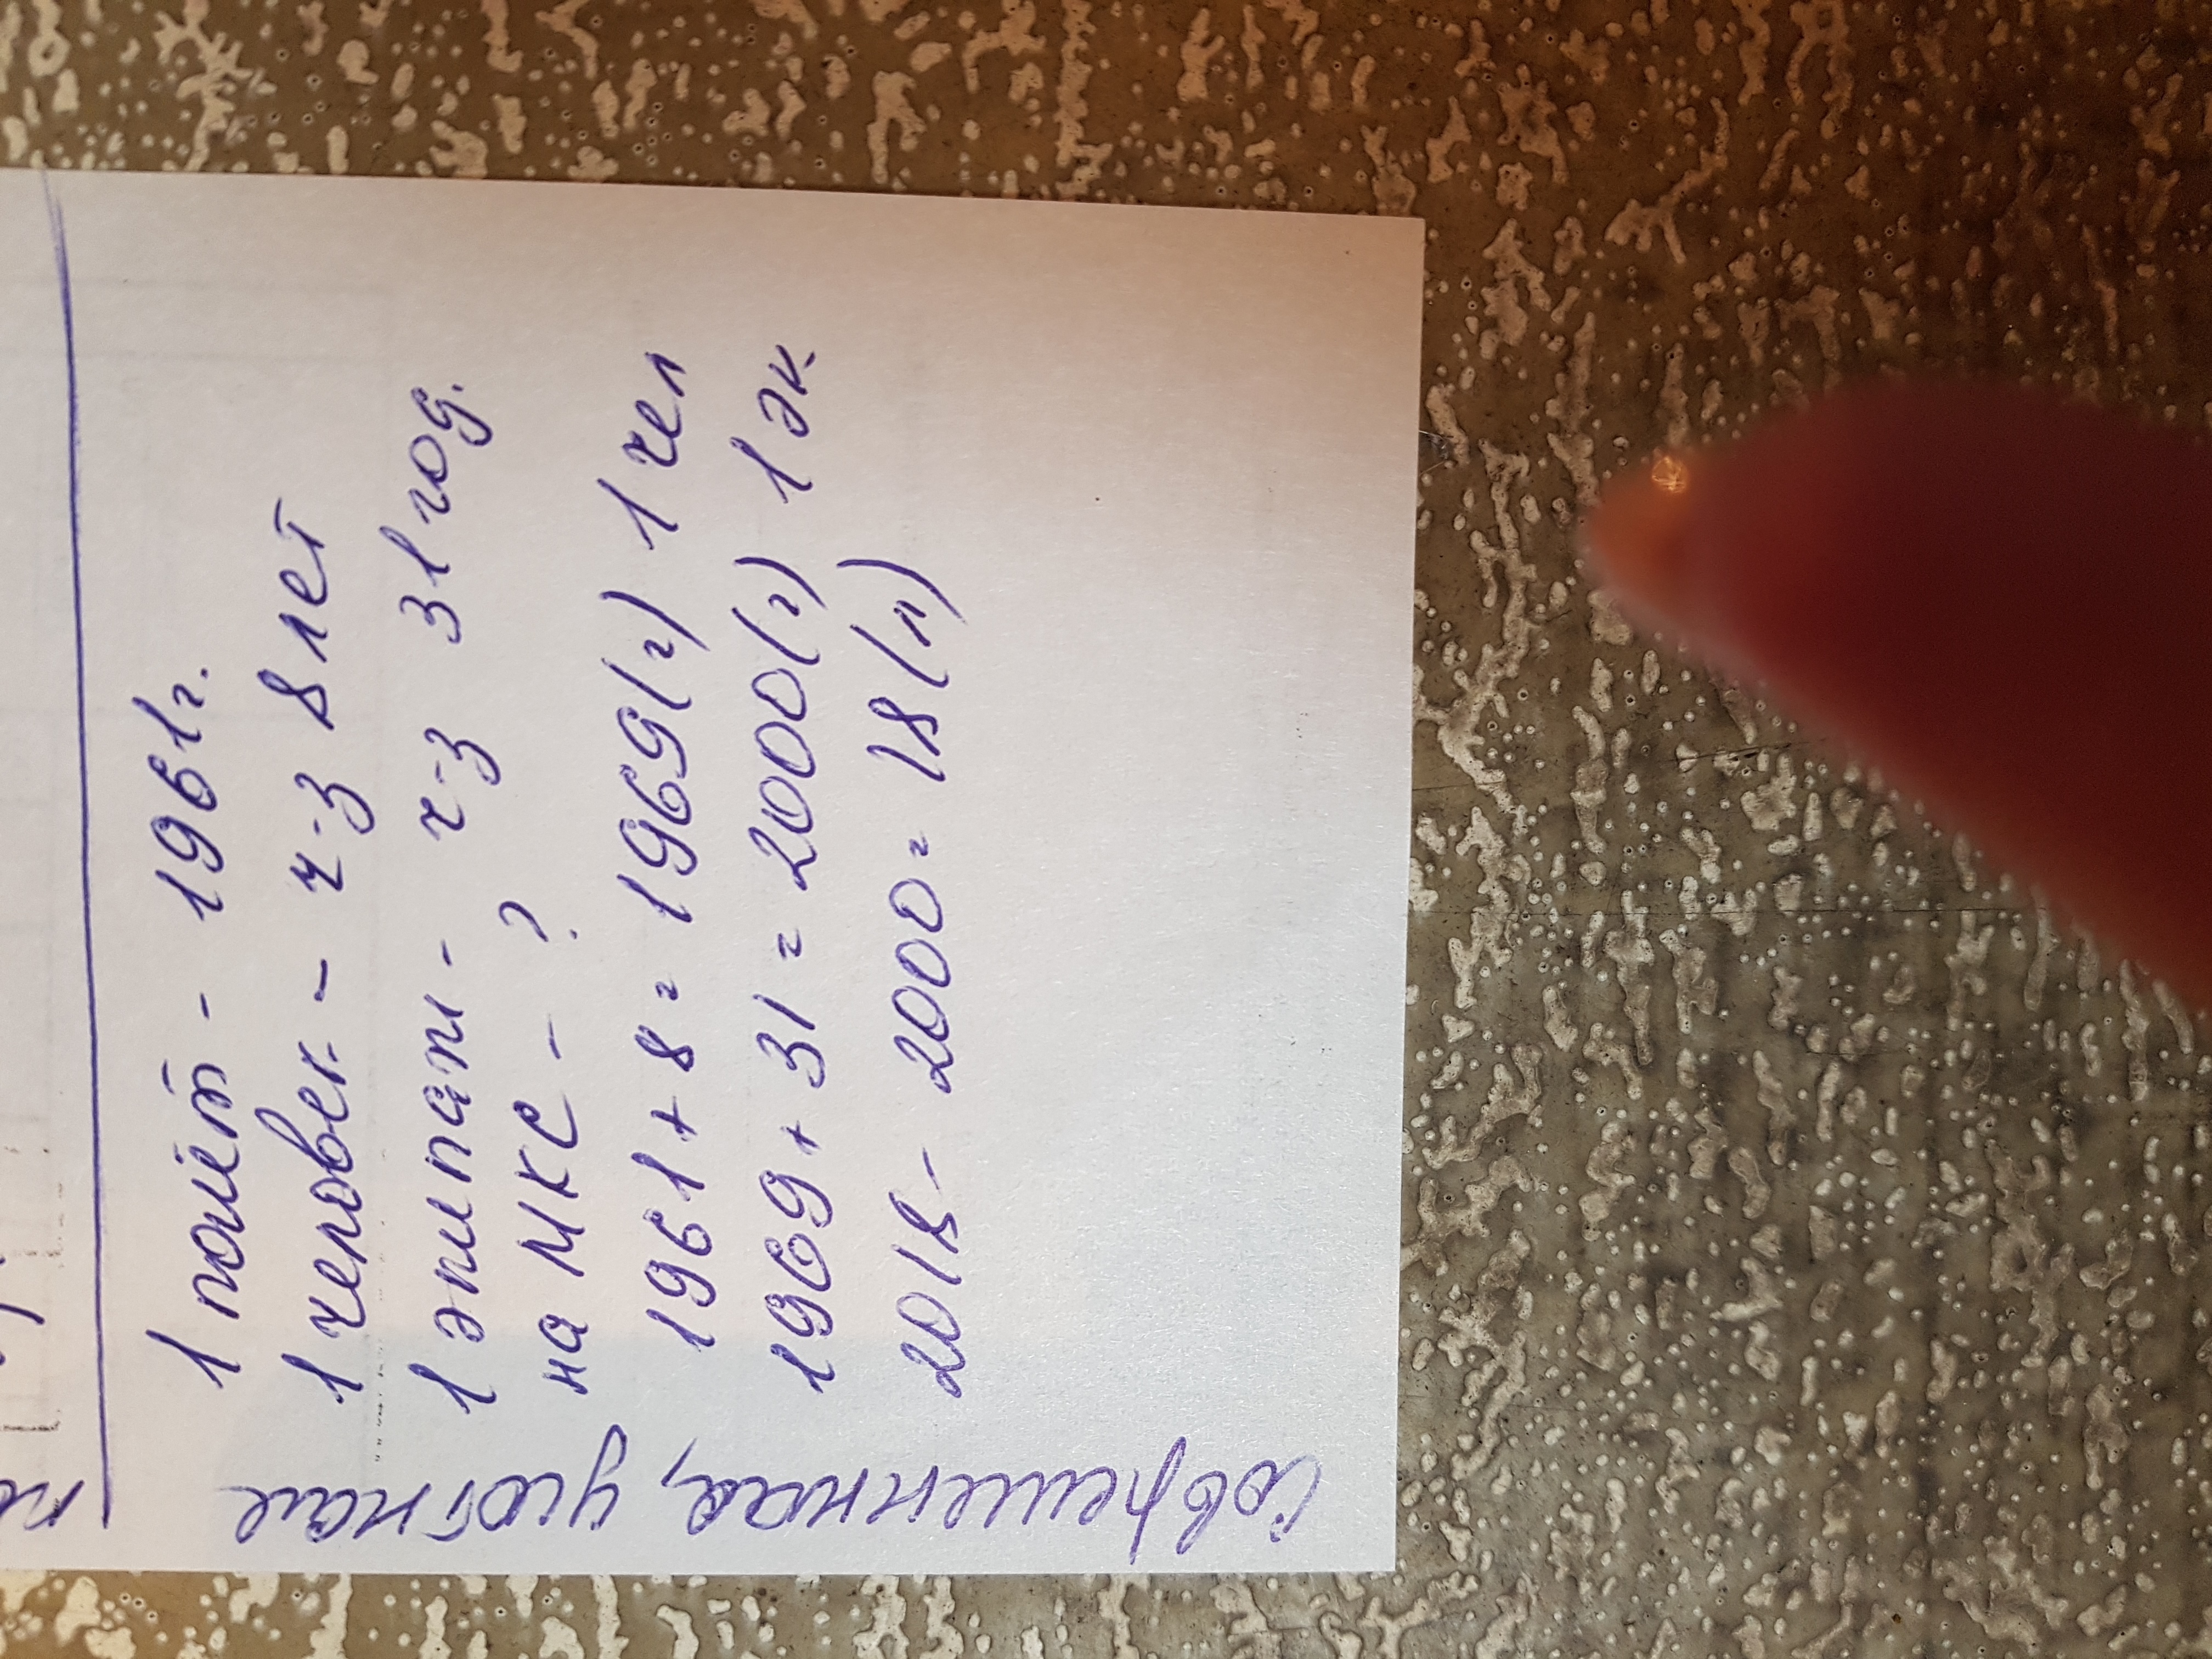 1 полёт - 1961г.
1 человек - ч-з 8 лет
1 экипаж - ч-з 31 год.
на МКС - ?
1961 + 8 = 1969(г) 1 чел
1969 + 31 = 2000(г) 1 эк.
2018 - 2000 = 18(л)